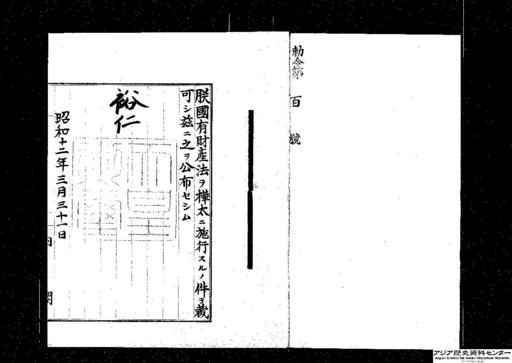 勅令第百號
朕國有財産法ヲ樺太ニ施行スルノ件ヲ裁
可シ茲ニ之ヲ公布セシム
裕仁
天皇御璽
昭和十二年三月三十一日
内閣
アジア歴史資料センター
Japan Center for Asian Historical Records